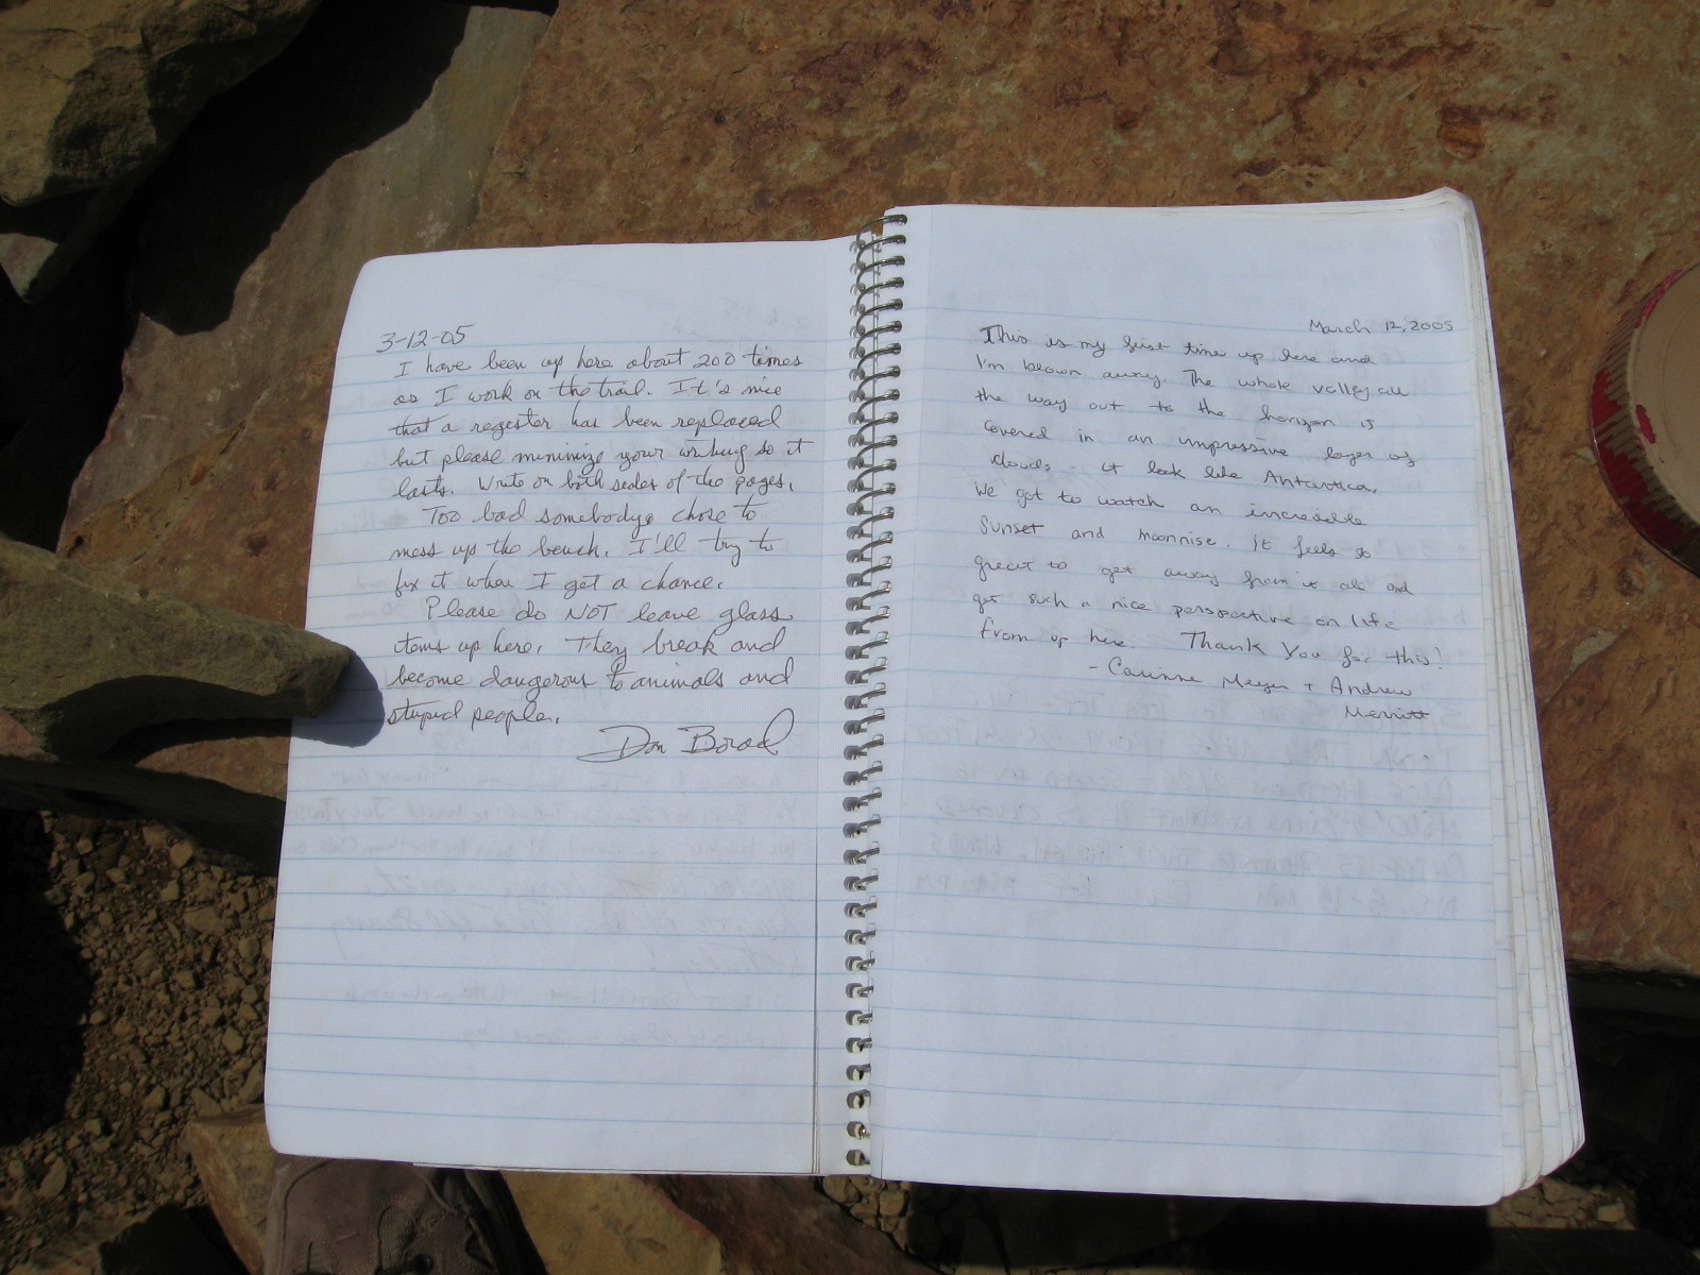 3-12-05
I have been up here about 200 times
as I work on the trail. It's nice
that a register has been replaced
but please minimize your writing so it
lasts. Write on both sides of the pages.
Too bad somebodys chose to
mess up the bench. I'll try to
fix it when I get a chance.
Please do NOT leave glass
items up here. They break and
become dangerous to animals and
stupid people.
Don
March 12, 2005
This is my first time up here and
I'm blown away. The whole valley all
the way out to the horizon is
covered in an impressive layer of
clouds - it look like Antartica.
We got to watch an incredible
sunset and moonrise. It feels so
great to get away from it all and
get such a nice perspective on life
from up here. Thank You for this!
- Corinne Meyer + Andrew
Merritt